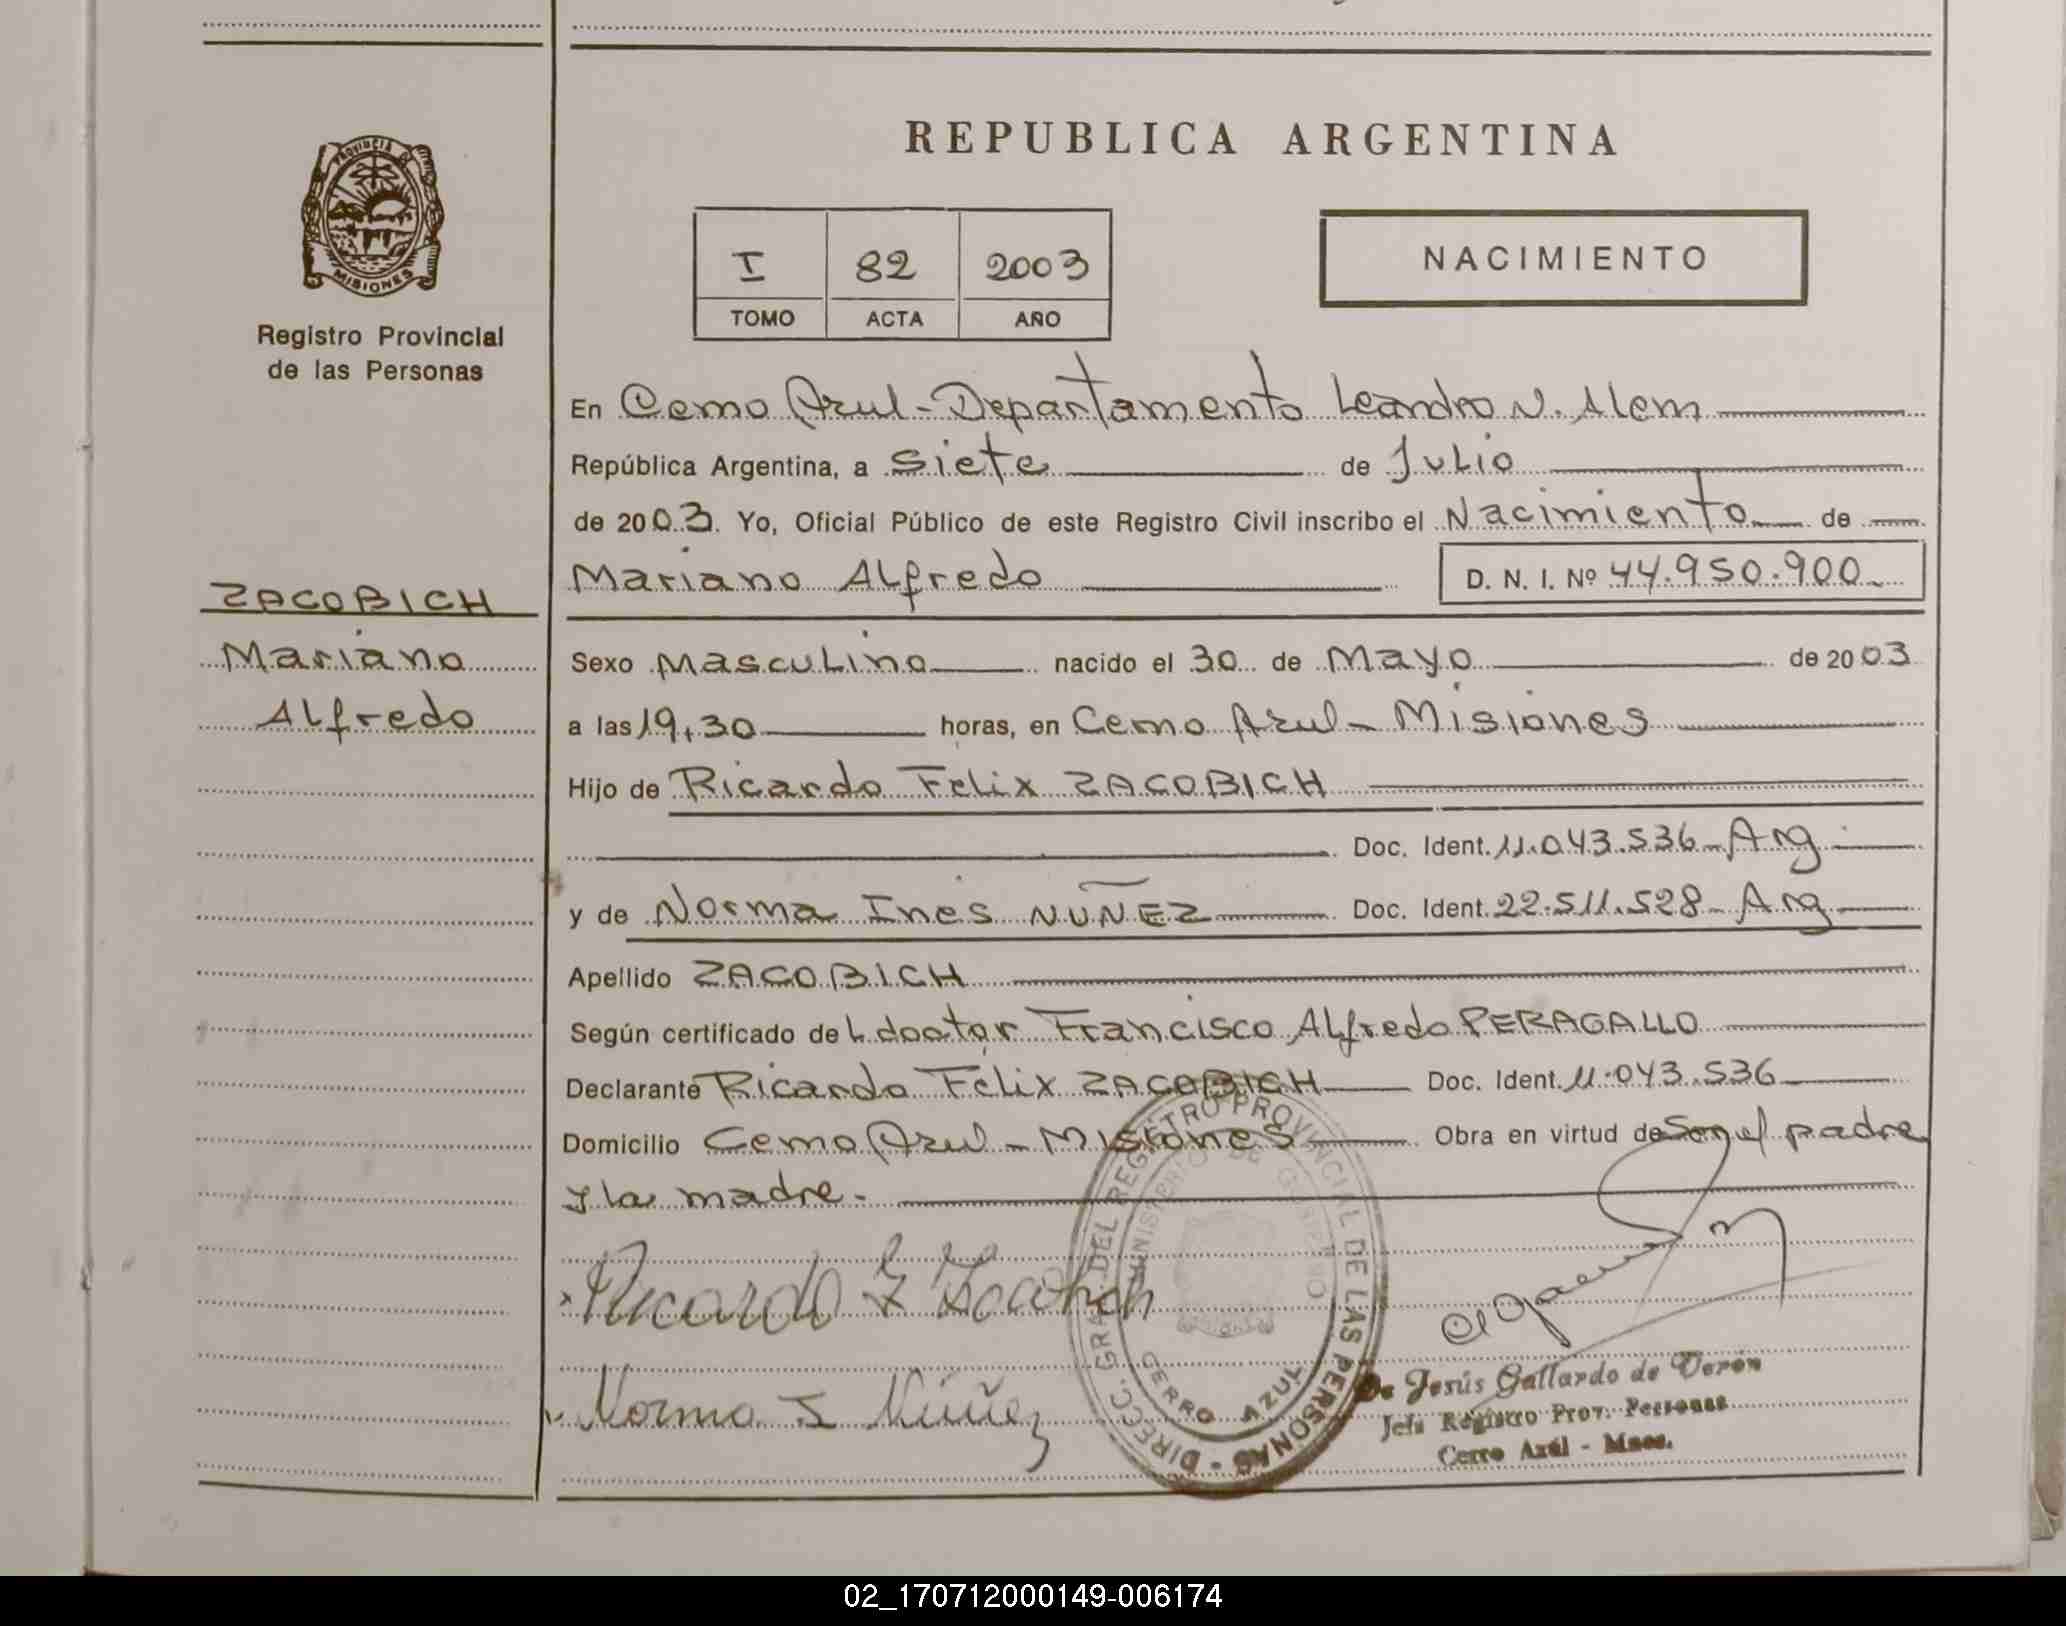 REPUBLICA ARGENTINA
PROVINCIA DE MISIONES
Registro Provincial
de las Personas
I 82 2003
TOMO ACTA AÑO
NACIMIENTO
En Cerro Azul - Departamento Leandro N. Alem
República Argentina, a Siete de Julio
de 2003. Yo, Oficial Público de este Registro Civil inscribo el Nacimiento de
Mariano Alfredo D. N. I. Nº 44.950.900
ZACOBICH
Mariano
Alfredo
Sexo Masculino nacido el 30 de Mayo de 2003
a las 19,30 horas, en Cerro Azul - Misiones
Hijo de Ricardo Felix ZACOBICH
Doc. Ident. 11.043.536 - Arg
y de Norma Inés NUÑEZ Doc. Ident. 22.511.528 - Arg
Apellido ZACOBICH
Según certificado del doctor Francisco Alfredo PERAGALLO
Declarante Ricardo Felix ZACOBICH Doc. Ident. 11.043.536
Domicilio Cerro Azul - Misiones Obra en virtud de Ser el padre
y la madre.-
Ricardo F Zacobich
Norma I Núñez
DIRECC. GRAL. DEL REGISTRO PROVINCIAL DE LAS PERSONAS -
MINISTERIO DE GOBIERNO
CERRO AZUL
de Jesús Gallardo de Verón
Jefa Registro Prov. Personas
Cerro Azúl - Mnes.
02_170712000149-006174